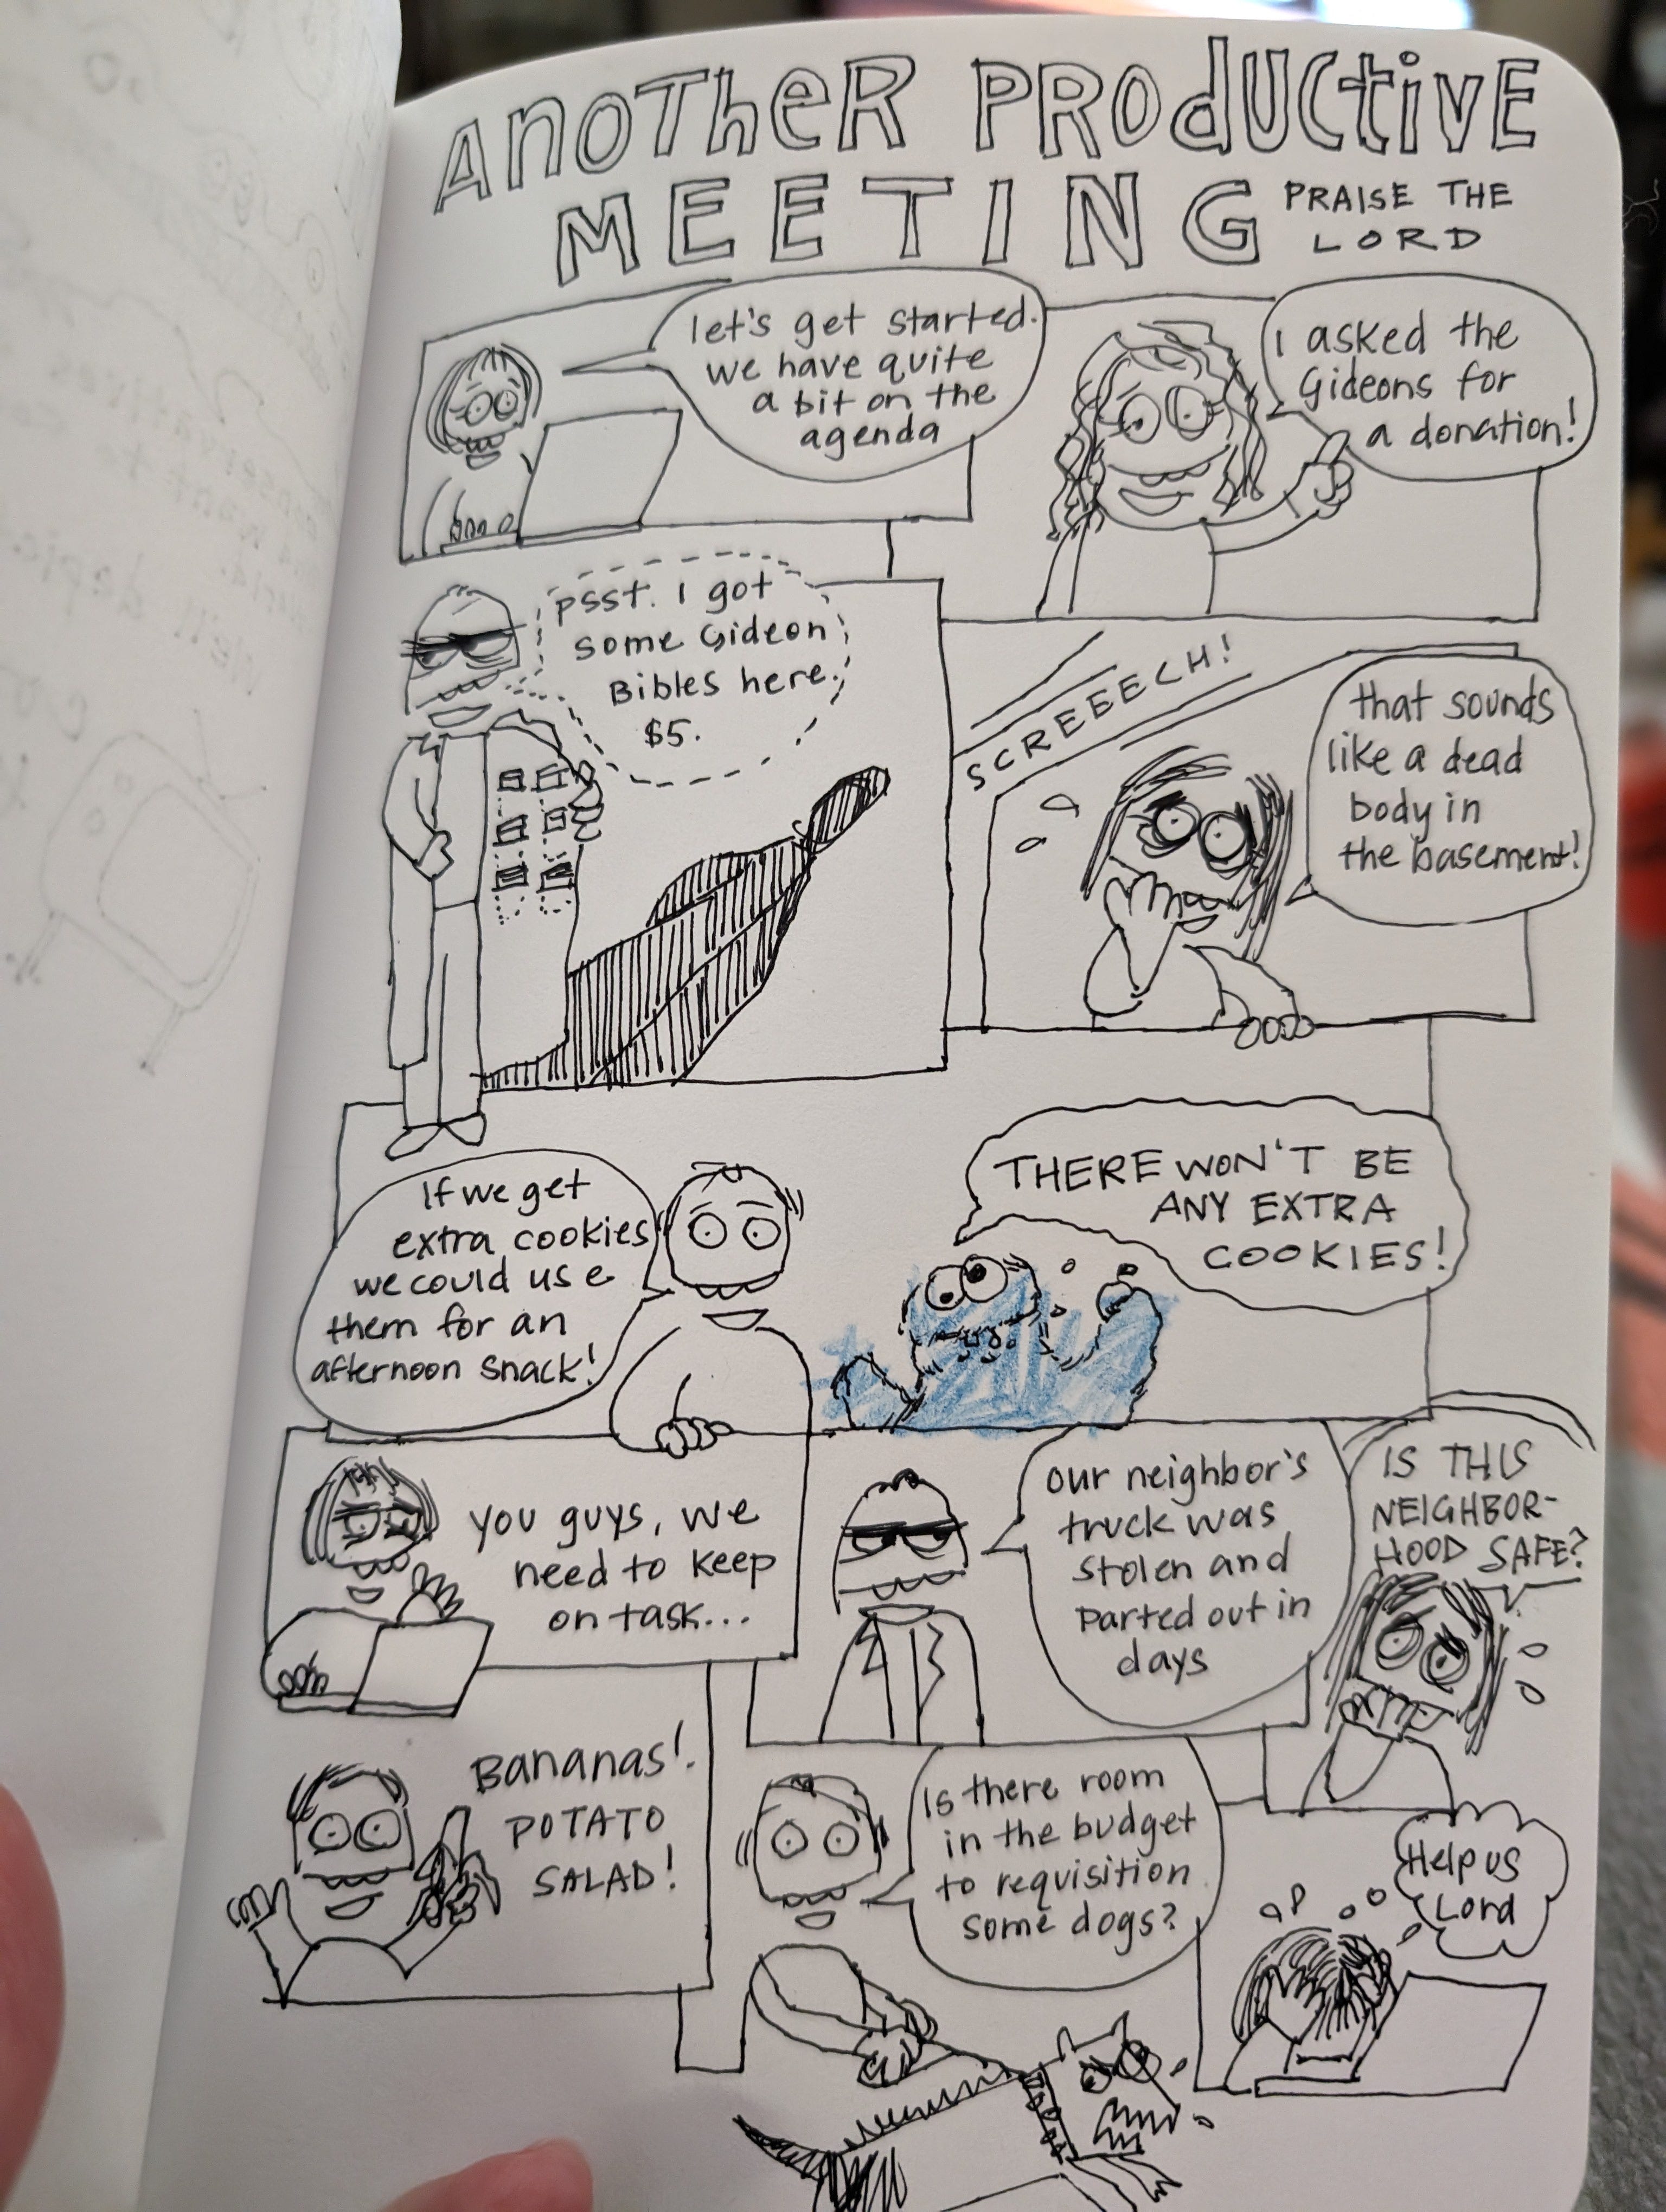 ANOTHER PRODUCTIVE
MEETING PRAISE THE
LORD
let's get started.
we have quite
a bit on the
agenda
I asked the
Gideons for
a donation!
psst. I got
some Gideon
Bibles here.
$5.
SCREEECH!
that sounds
like a dead
body in
the basement!
If we get
extra cookies
we could use
them for an
afternoon snack!
THERE WON'T BE
ANY EXTRA
COOKIES!
you guys, we
need to keep
on task...
our neighbor's
truck was
stolen and
parted out in
days
IS THIS
NEIGHBOR-
HOOD SAFE?
Bananas!
POTATO
SALAD!
Is there room
in the budget
to requisition
some dogs?
Help us
Lord